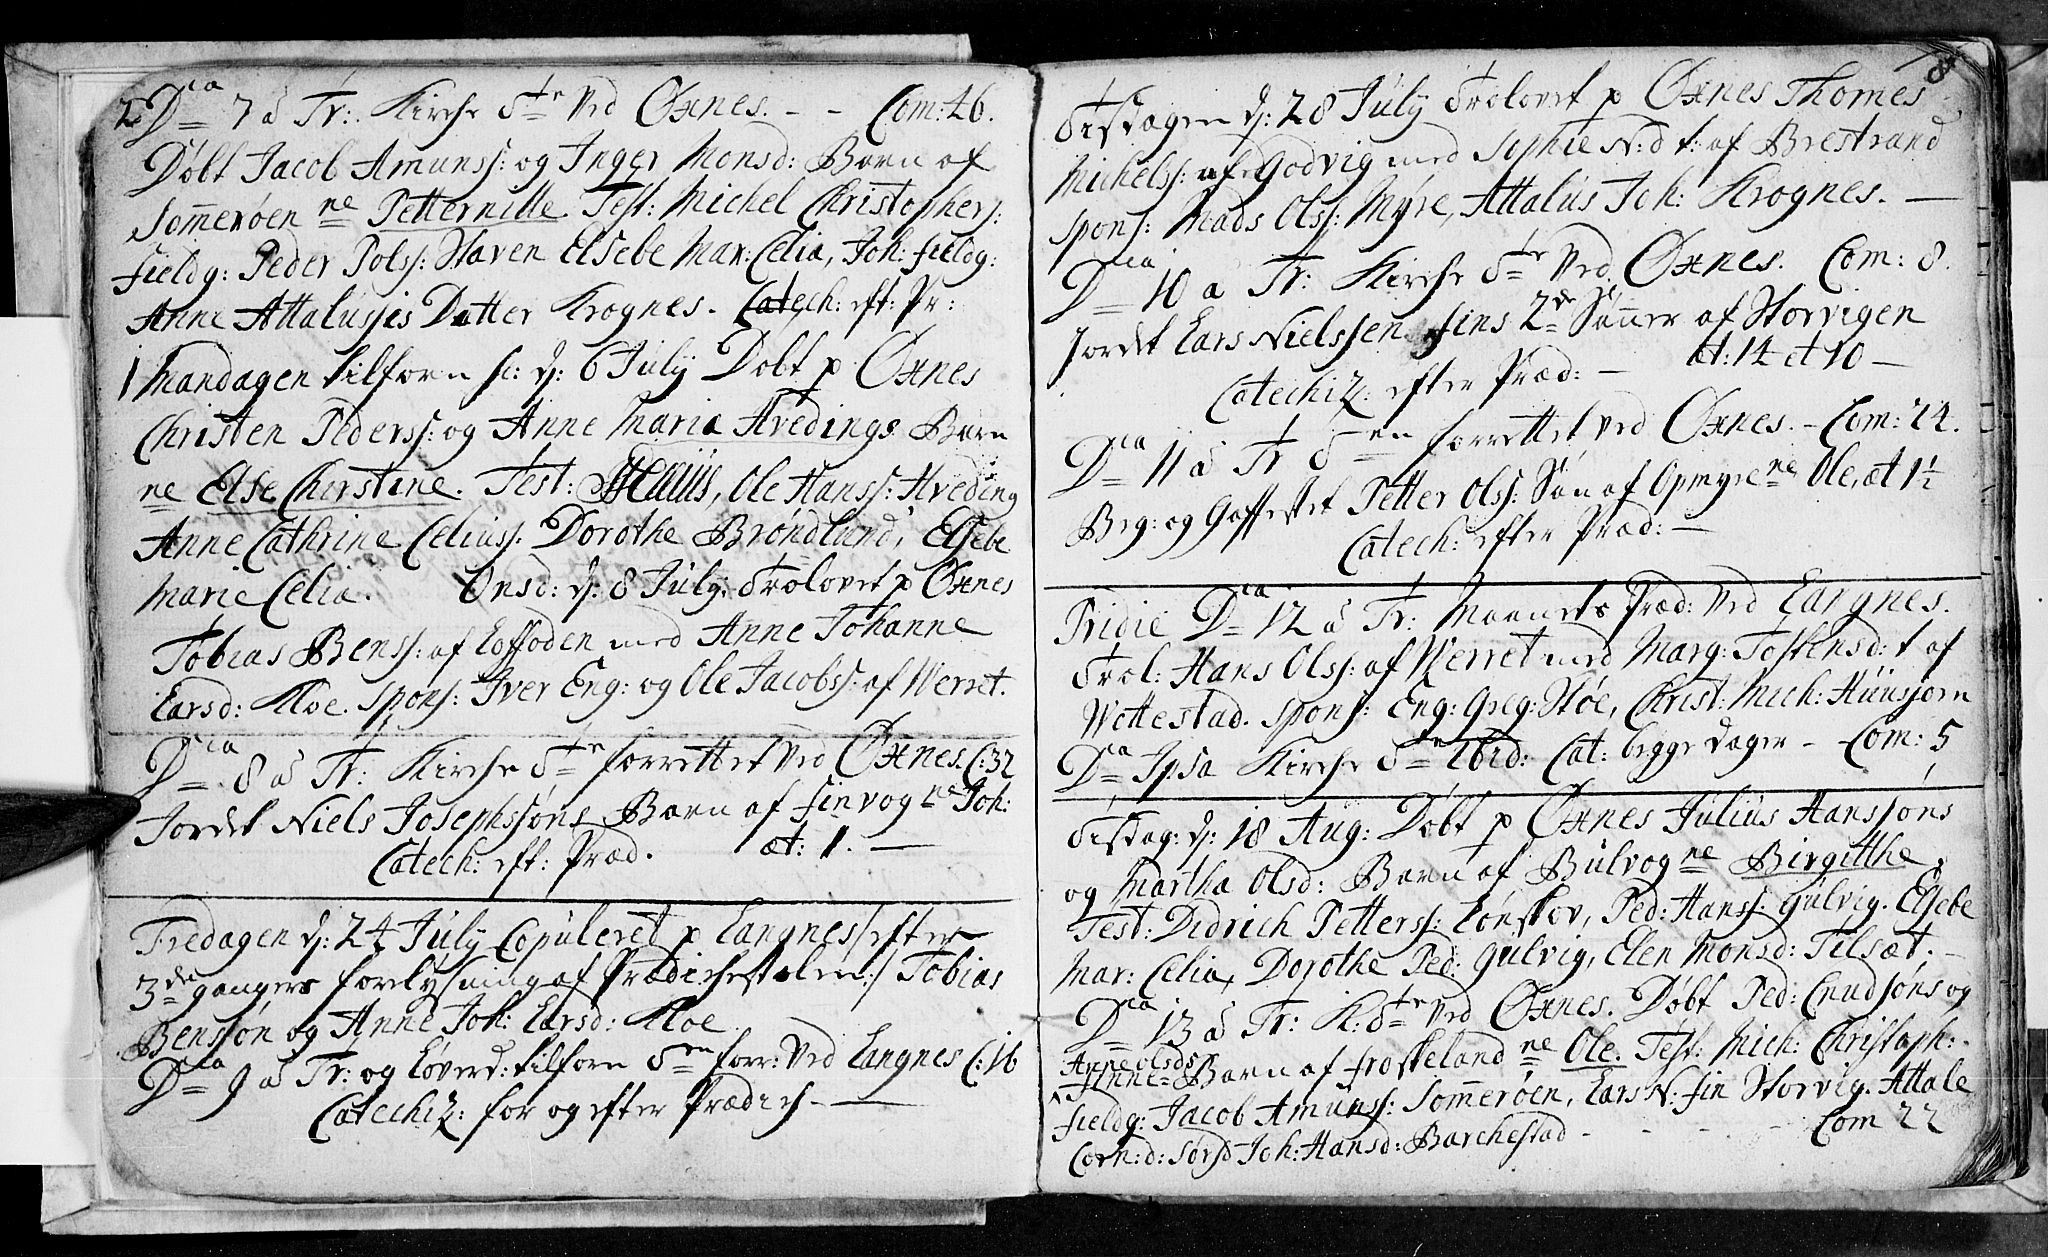 2 Dca 7 à Tr: Kirche Stn ved Øxnes. - - Com: 46.
Døbt Jacob Amunss: og Inger Monsd: Barn af
Sommerøen ne Petternille. Test: Michel Christophers:
Fieldg: Peder Polss: Staven Elsebe Mar: Celia, Joh: Fieldg:
Anne Attalusjes Datter Krognes. Catech: eft: Pr:
1 Mandagen tilforn sc: d: 6 July Døbt p Øxnes
Christen Pederss: og Anne Maria Hvedings Barn
ne Else Chirstine. Test: Ole Hanss: Hveding
Anne Cathrine Celiuss: Dorothe Brøndlund, Elsebe
Marie Celia. Onsd: d: 8 July: Trolovet p Øxnes
Tobias Benss: af Loffoden med Anne Johanne
Larsd: Kloe. Spons: Iver Eng: og Ole Jacobss: af Werret.
Dnica 8 à Tr: Kirche Stn forrettet ved Øxnes. C: 32
Jordet Niels Josephssøns Barn af Finvog ne Joh:
Catech: eft: Præd. æt: 1. —
Fredagen d: 24 July Copuleret p Langnes /: efter
3de gangers forelysning af Prædichestolen :/ Tobias
Bensøn og Anne Joh: Larsd: Kloe.
Dca 9 à Tr: og Løverd: tilforn Sten forr: ved Langnes C: 16
Catechiz: for og efter Prædich - —
Tisdagen d: 28 July Trolovet p Øxnes Thomes
Michelss: af Godvig med Sophie N: d t: af Brestrand
Spons: Mads Olss: Myre, Attalus Joh: Krognes. —
Dnca 10 a Tr: Kirche Stne ved Øxnes. Com: 8.
Jordet Lars Nielssen Fins 2de Sønner af Storvigen
Catechiz: efter Præd: — æt: 14 et 10 —
Dca 11 à Tr Sten forrettet ved Øxnes. - Com: 24.
Beg: og Gaffestet Petter Olss: Søn af Opmyre ne Ole, æt 1½
Catech: efter Præd: —
Pridie Dca 12 à Tr: Præd: ved Langnes.
Trol: Hans Olss: af Werret med Marg: Tostensd: t af
Wottestad. Spons: Eng: Greg: Støe, Christ: Mich: Hunsiørn
Dca Ipsa Kirche Stne Ibid: Cat: begge dager - Com: 5
Tisdag: d: 18 Aug: Døbt p Øxnes Julius Hanssøns
og Martha Olsd: Barn af Bulvog ne Birgitthe.
Test: Didrich Petterss: Lønskov, Ped: Hanss: Gulvig. Elsebe
Mar: Celia, Dorothe Ped: Gulvig, Elen Monsd: Tilsæt. —
Dca 13 à Tr: K: Stn ved Øxnes. Døbt Ped: Cnudsøns og
Anne Olsds Barn af Froskeland ne Ole. Test: Mich: Christoph:
Fieldg: Jacob Amunss: Sommerøen, Lars N: Fin Storvig. Attale
Corn: d: Joh: Hansd: Barchestad - - - - - Com 22